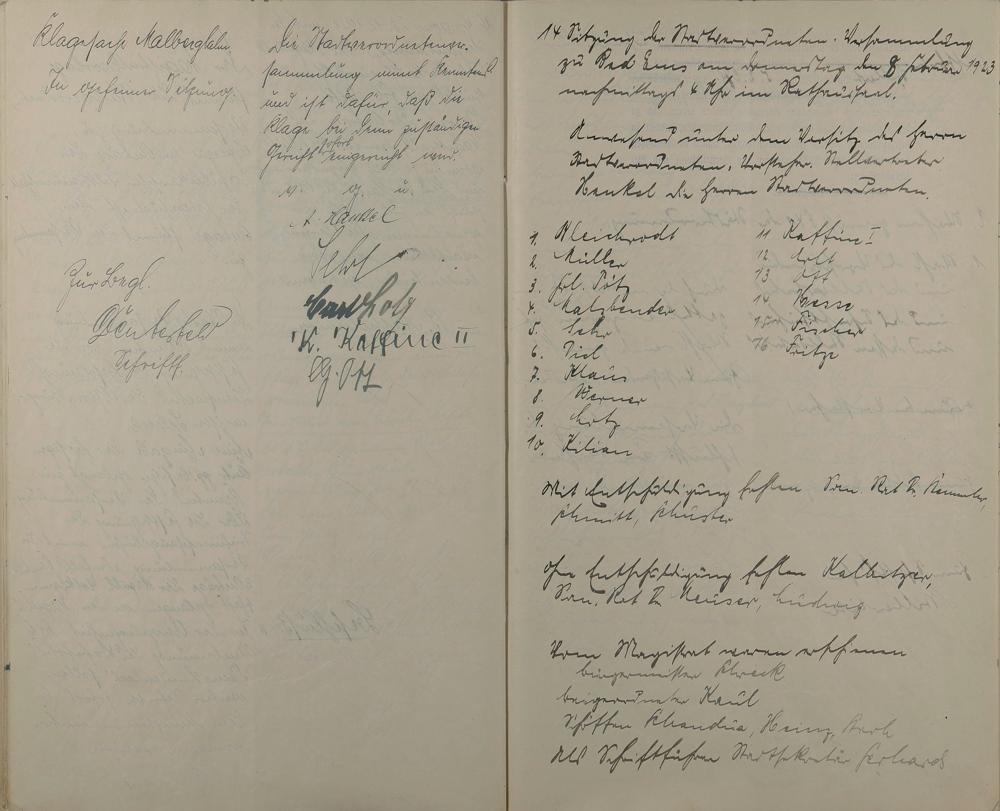 Klagesache Malbergbahn.
In offener Sitzung.
Die Stadtverordnetenver-
sammlung nimt Kenntnis
und ist dafür, daß die
Klage bei dem zuständigen
Gericht sofort eingereicht wird.
v. g. u.
Henkel
Sehr
K. Kaffine II
G. Ott
Zur Begl.
Schriftf.
14 Sitzung der Stadtverordneten-Versammlung
zu Bad Ems am Donnerstag den 8 Februar 1923
nachmittags 4 Uhr im Rathaussaal.
Anwesend unter dem Vorsitz des Herrn
Stadtverordneten-Vorsteher-Stellvertreter
Henkel die Herren Stadtverordneten.
1. Bleichrodt
2. Müller
3. Frl. Pötz
4. Katzbender
5. Sehr
6. Diel
7. Klaus
8. Werner
9. Lotz
10. Kilian
11 Kaffine I
12
13 Ott
14 Hesse
15 Fischer
16 Fritze
Mit Entschuldigung fehlen San. Rat Dr.
Schmitt, Schuster
Ohne Entschuldigung fehlen Kalbitzer,
San. Rat Dr. Reuser, Ludwig
Vom Magistrat waren erschienen
Bürgermeister Schreck
Beigeordneter Kaul
Schöffen Heinz,
Als Schriftführer Stadtsekretär Gerhards